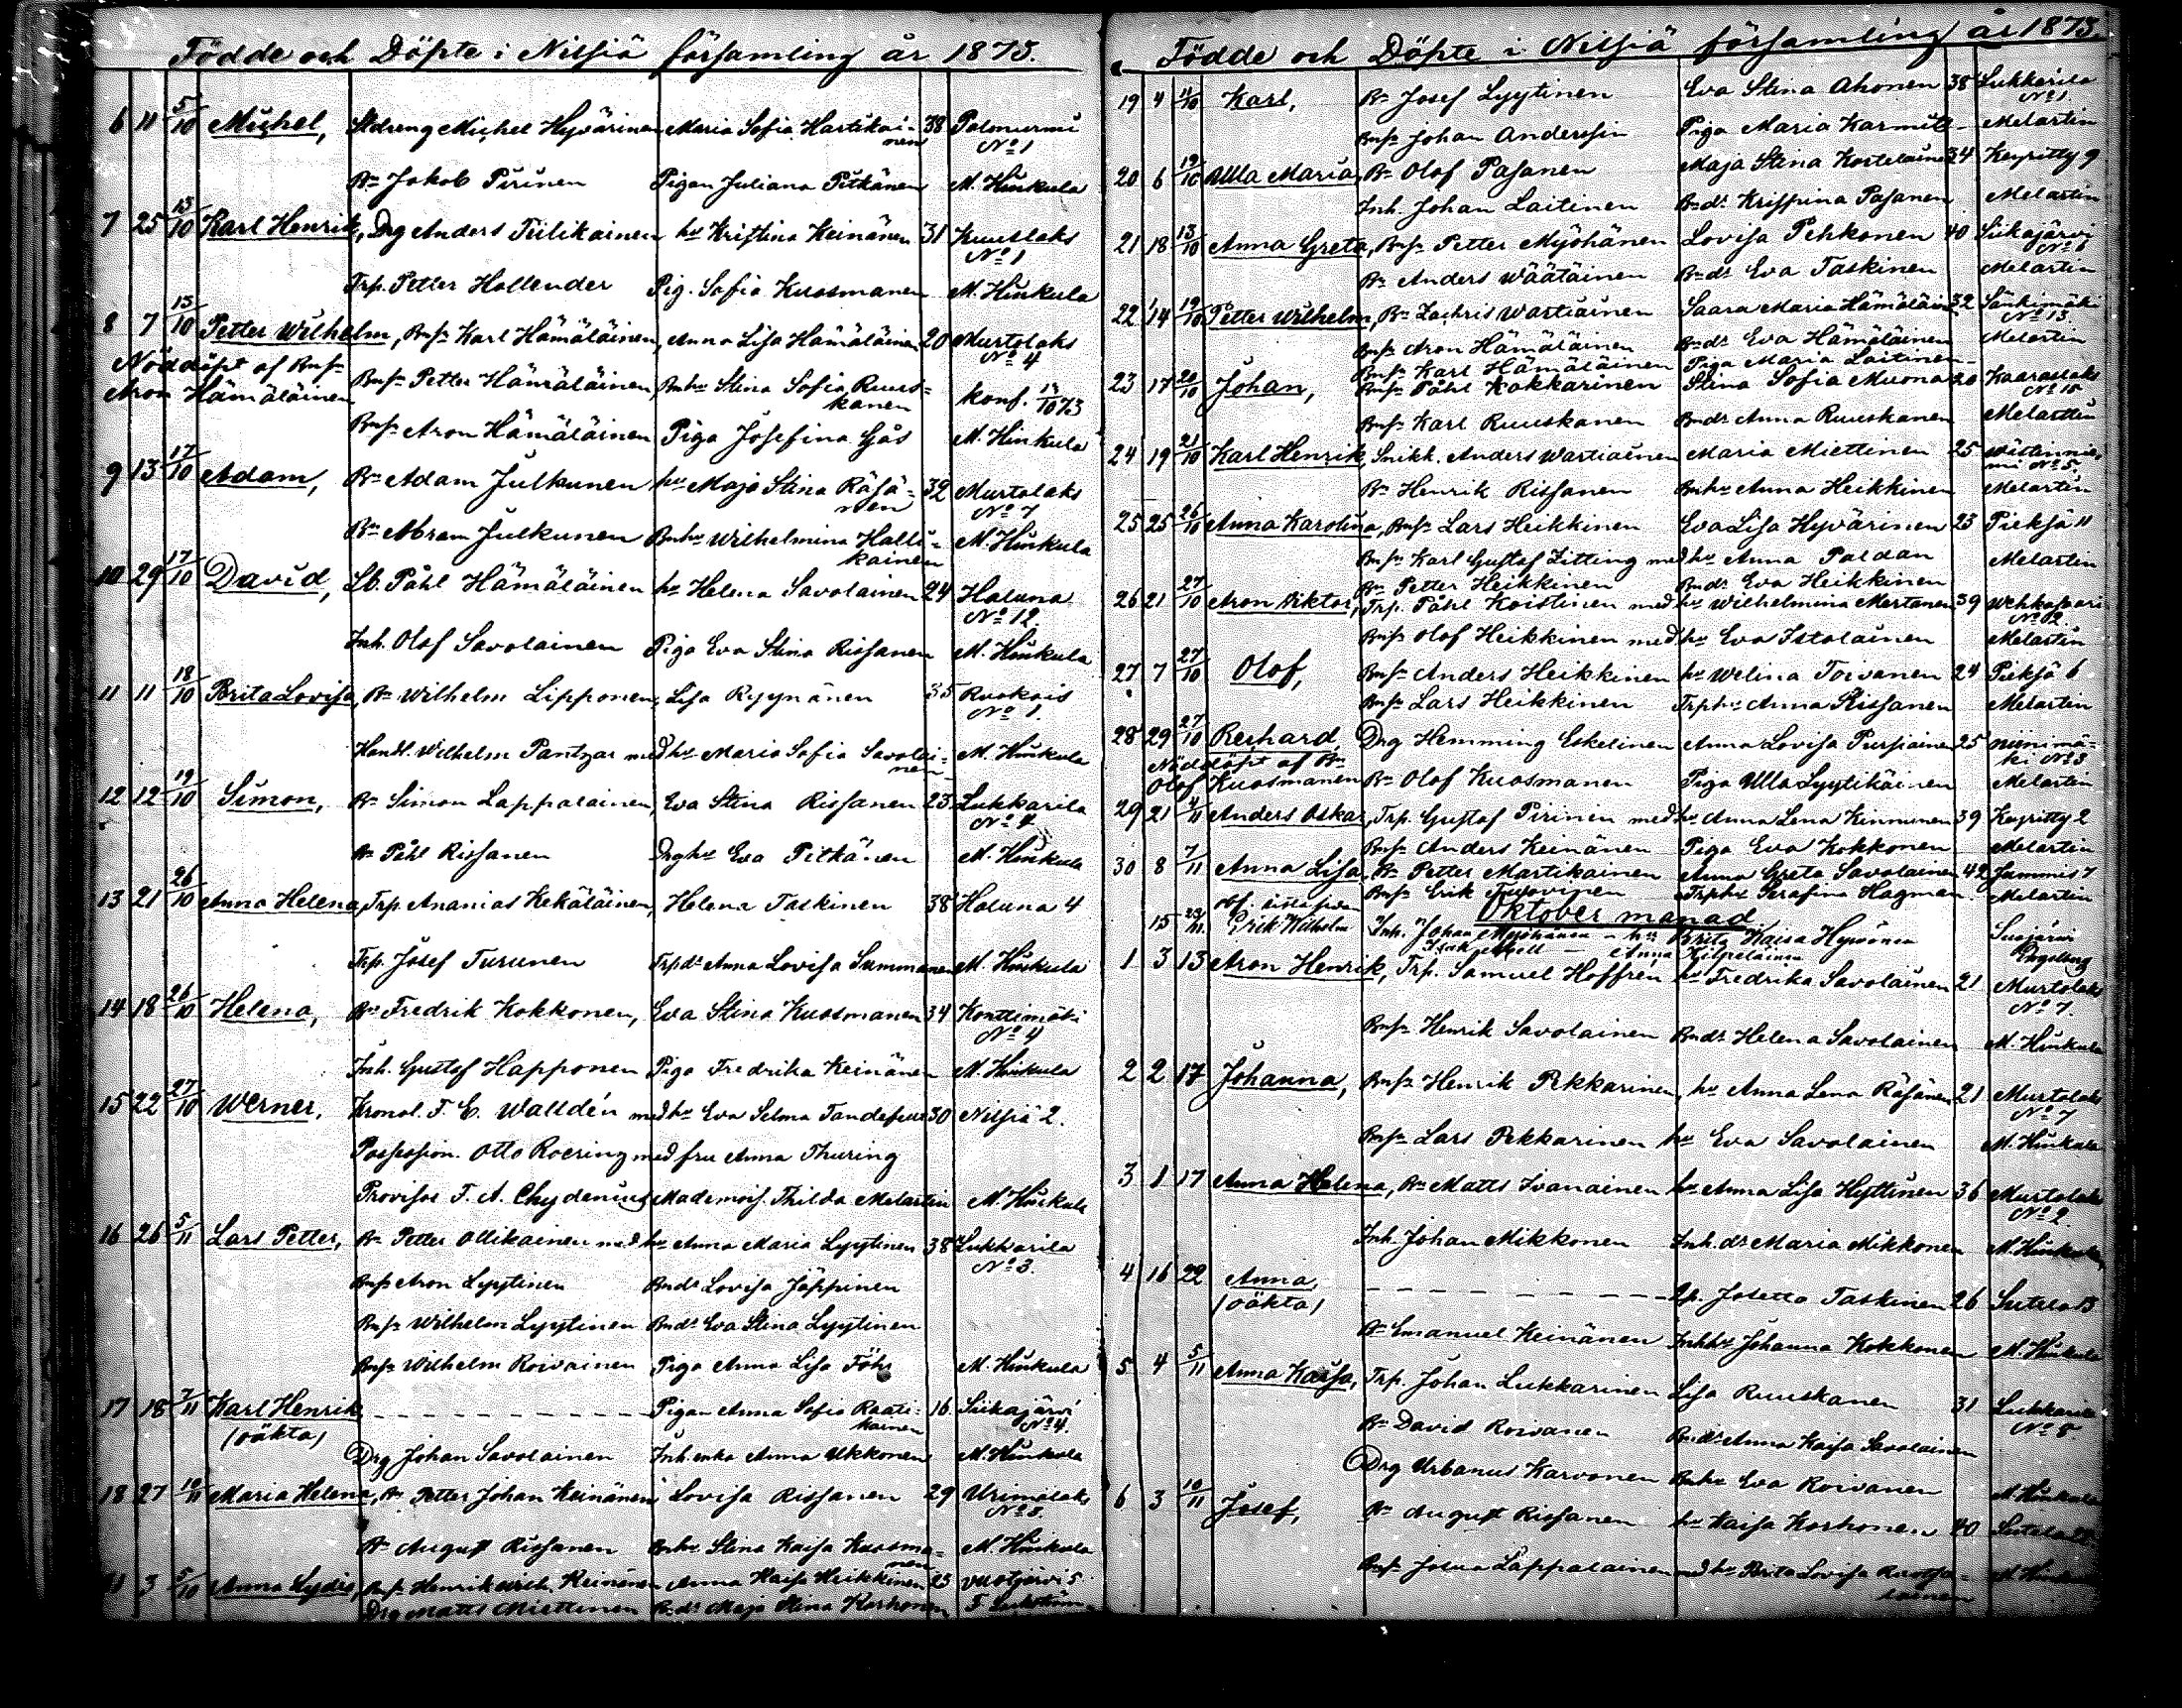 Födde och Döpte i Nilsiä församling år 1873.
6 11 5/10 Michel, Stdreng Michel Hyvärinen Maria Sofia Hartikai- 38 Palmurmi
nen No 1
Bn Jakob Pirinen Pigan Juliana Pitkänen M. Hinkula
7 25 13/10 Karl Henrik, Drg Anders Tiilikainen hu Kristina Keinänen 31 Kuuslaks
No 1
Trp. Petter Hollender Pig. Sofia Kuosmanen M. Hinkula
8 7 13/10 Petter Wilhelm, Bnsn Karl Hämäläinen, Anna Lisa Hämäläinen 20 Murtolaks
No 4
Nöddöpt af Bnsn
Aron Hämäläinen
Bnsn Petter Hämäläinen, Bnhu Stina Sofia Ruus-
kanen konf. 73
Bnsn Aron Hämäläinen Piga Josefina Gås M. Hinkula
9 13 17/10 Adam, Bn Adam Julkunen hu Maja Stina Räsä- 32 Murtolaks
nen No 7
Bn Abram Julkunen Bnhu Wilhelmina Halli-
kainen M. Hinkula
10 29 17/10 David, Lb. Påhl Hämäläinen hu Helena Savolainen 24 Haluna
No 12.
Inh. Olof Savolainen Piga Eva Stina Rissanen M. Hinkula
11 11 18/10 Brita Lovisa, Bn Wilhelm Lipponen, Lisa Ryynänen 35 Ruokois
No 1.
Handl. Wilhelm Pantzar med hu Maria Sofia Savolai-
nen M. Hinkula
12 12 19/10 Simon, Bn Simon Lappalainen, Eva Stina Rissanen 23 Lukkarila
No 4
Bn Påhl Rissanen Drghu Eva Pitkänen M. Hinkula
13 21 26/10 Anna Helena, Trp. Ananias Kekäläinen, Helena Taskinen 38 Haluna 4
Trp. Josef Turunen Trpdr Anna Lovisa Summanen M. Hinkula
14 18 26/10 Helena, Bn Fredrik Kokkonen, Eva Stina Kuosmanen 34 Konttimäki
No 4
Inh. Gustaf Happonen Piga Fredrika Keinänen M. Hinkula
15 22 27/10 Werner, Kronol. F. E. Walldén med hu Eva Selma Tandefelt 30 Nilsiä 2.
Possession. Otto Roering med fru Anna Thuring
Provisor F. A. Chydenius Mademois. Thilda Melartin M. Hinkula
16 26 5/11 Lars Petter, Bn Petter Ollikainen med hu Anna Maria Lyytinen 38 Lukkarila
No 3.
Bnsn Aron Lyytinen Bndr Lovisa Jäppinen
Bnsn Wilhelm Lyytinen Bndr Eva Stina Lyytinen
Bnsn Wilhelm Roivainen Piga Anna Lisa Föhr M. Hinkula
17 18 7/11 Karl Henrik Pigan Anna Sofia Raati- 16 Siikajärvi
(oäkta) kainen No 4.
Drg Johan Savolainen Inh. enka Anna Ukkonen M. Hinkula
18 27 10/11 Maria Helena, Bn Petter Johan Keinänen Lovisa Rissanen 29 Urimolaks
No 3.
Bn August Rissanen Bnhu Stina Kaisa Kuosma-
nen M. Hinkula
3 5/10 Anna Lydia, Bnsn Henrik Keinänen Anna Kaisa Heikkinen 23 Vuotjärvi 5
Drg Matts Miettinen Bndr Maja Stina Korhonen
Födde och Döpte i Nilsiä församling år 1873.
19 4 Karl, Bn Josef Lyytinen Eva Stina Ahonen 38 Lukkarila
No 1.
Bnsn Johan Andersin Piga Maria Karmitt Melartin
20 6 19/10 Ulla Maria, Bn Olof Pasanen Maja Stina Kortelainen 34 Keyritty 9
Inh. Johan Laitinen Bndr Krispina Pasanen Melartin
21 18 13/10 Anna Greta, Bnsn Petter Myöhänen Lovisa Pehkonen 40 Siikajärvi
No 6
Bn Anders Wäätäinen Bndr Eva Taskinen Melartin
22 14 19/10 Petter Wilhelm, Bn Zachris Wartiainen Saara Maria Hämäläinen 32 Sänkimäki
No 13.
Bnsn Aron Hämäläinen Bndr Eva Hämäläinen Melartin
Bnsn Karl Hämäläinen Piga Maria Laitinen
23 17 20/10 Johan, Bnsn Påhl Kokkarinen Stina Sofia Muona 20 Kaaraslaks
No 15
Bnsn Karl Ruuskanen Bndr Anna Ruuskanen Melartin
24 19 21/10 Karl Henrik, Snikk. Anders Wartiainen Maria Miettinen 25 Wittinnie-
mi No 5.
Bn Henrik Rissanen Bnhu Anna Heikkinen Melartin
25 25 26/10 Anna Karolina, Bnsn Lars Heikkinen Eva Lisa Hyvärinen 23 Pieksä 11
Bnsn Karl Gustaf Zitting med hu Anna Paldan Melartin
Bn Petter Heikkinen Bndr Eva Heikkinen
26 21 27/10 Aron Viktor, Trp. Påhl Koistinen med hu Wilhelmina Mertanen 39 Wehkasari
No 2.
Bnsn Olof Heikkinen med hu Eva Istolainen Melartin
27 7 27/10 Olof, Bnsn Anders Heikkinen hu Welina Toivanen 24 Pieksä 6
Bnsn Lars Heikkinen Trphu Anna Rissanen Melartin
28 29 27/10 Reihard, Drg Hemming Eskelinen Anna Lovisa Pursiainen 25 Niinimä-
ki No 3
Nöddöpt af Bn
Olof Kuosmanen Bn Olof Kuosmanen Piga Ulla Lyytikäinen Melartin
29 21 4/11 Anders Oskar, Trp. Gustaf Pirinen med hu Anna Lena Kinnunen 39 Keyritty 2
Bnsn Anders Keinänen Piga Eva Kokkonen Melartin
30 8 7/11 Anna Lisa, Bn Petter Martikainen Anna Greta Savolainen 42 Jummis 7
Bnsn Erik Tuovinen Trphu Serafina Hagman Melartin
Oktober månad
15 Erik Wilhelm Inh. Johan Myöhänen - hu Brita Kaisa Hyvönen Suojärvi
Anna Kilpeläinen
1 3 13 Aron Henrik, Trp. Samuel Hoffren hu Fredrika Savolainen 21 Murtolaks
No 7.
Bnsn Henrik Savolainen Bndr Helena Savolainen M. Hinkula
2 2 17 Johanna, Bnsn Henrik Pekkarinen, hu Anna Lena Räsänen 21 Murtolaks
No 7
Bnsn Lars Pekkarinen hu Eva Savolainen M. Hinkula
3 1 17 Anna Helena, Bn Matts Ivanainen hu Anna Lisa Hyttinen 36 Murtolaks
No 2.
Inh. Johan Mikkonen Inh. dr Maria Mikkonen M. Hinkula
4 16 22 Anna, Qp. Josetta Taskinen 26 Sutela 13
(oäkta)
Bn Emanuel Keinänen Inhhu Johanna Kokkonen M. Hinkula
5 4 5/11 Anna Kaisa, Trp. Johan Lukkarinen Lisa Ruuskanen 31 Lukkarila
No 5
Bn David Roivanen Bndr Anna Kaisa Savolainen
Drg Urbanus Karvonen Bnhu Eva Roivanen M. Hinkula
6 3 10/11 Josef, Bn August Rissanen hu Kaisa Korhonen 40 Sutela
Bnsn Josua Lappalainen med hu Brita Lovisa